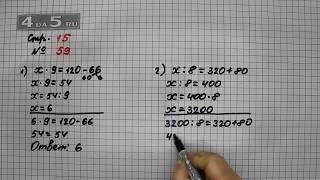 4 DA 5 .RU
Стр. 15
№ 59
1) x · 9 = 120 - 66
x · 9 = 54
x = 54 : 9
x = 6
6 · 9 = 120 - 66
54 = 54
Ответ: 6
2) x : 8 = 320 + 80
x : 8 = 400
x = 400 · 8
x = 3200
3200 : 8 = 320 + 80
4